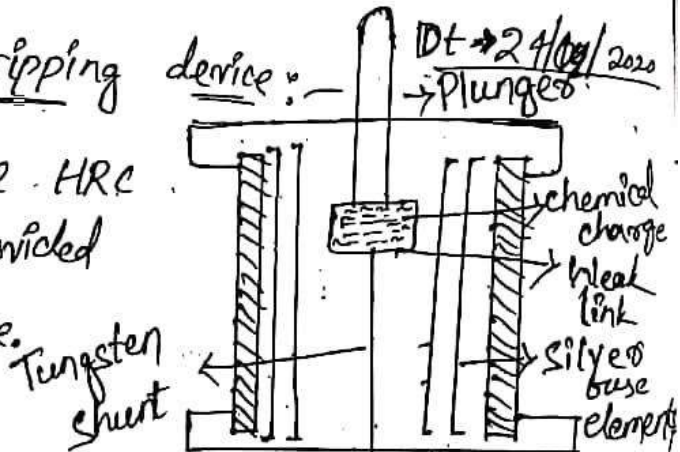 ripping device :- Dt → 24/09/2020
→ Plunger
HRC
vided
chemical
charge
Weak
link
e.
Tungsten
shunt
Silver
fuse
element